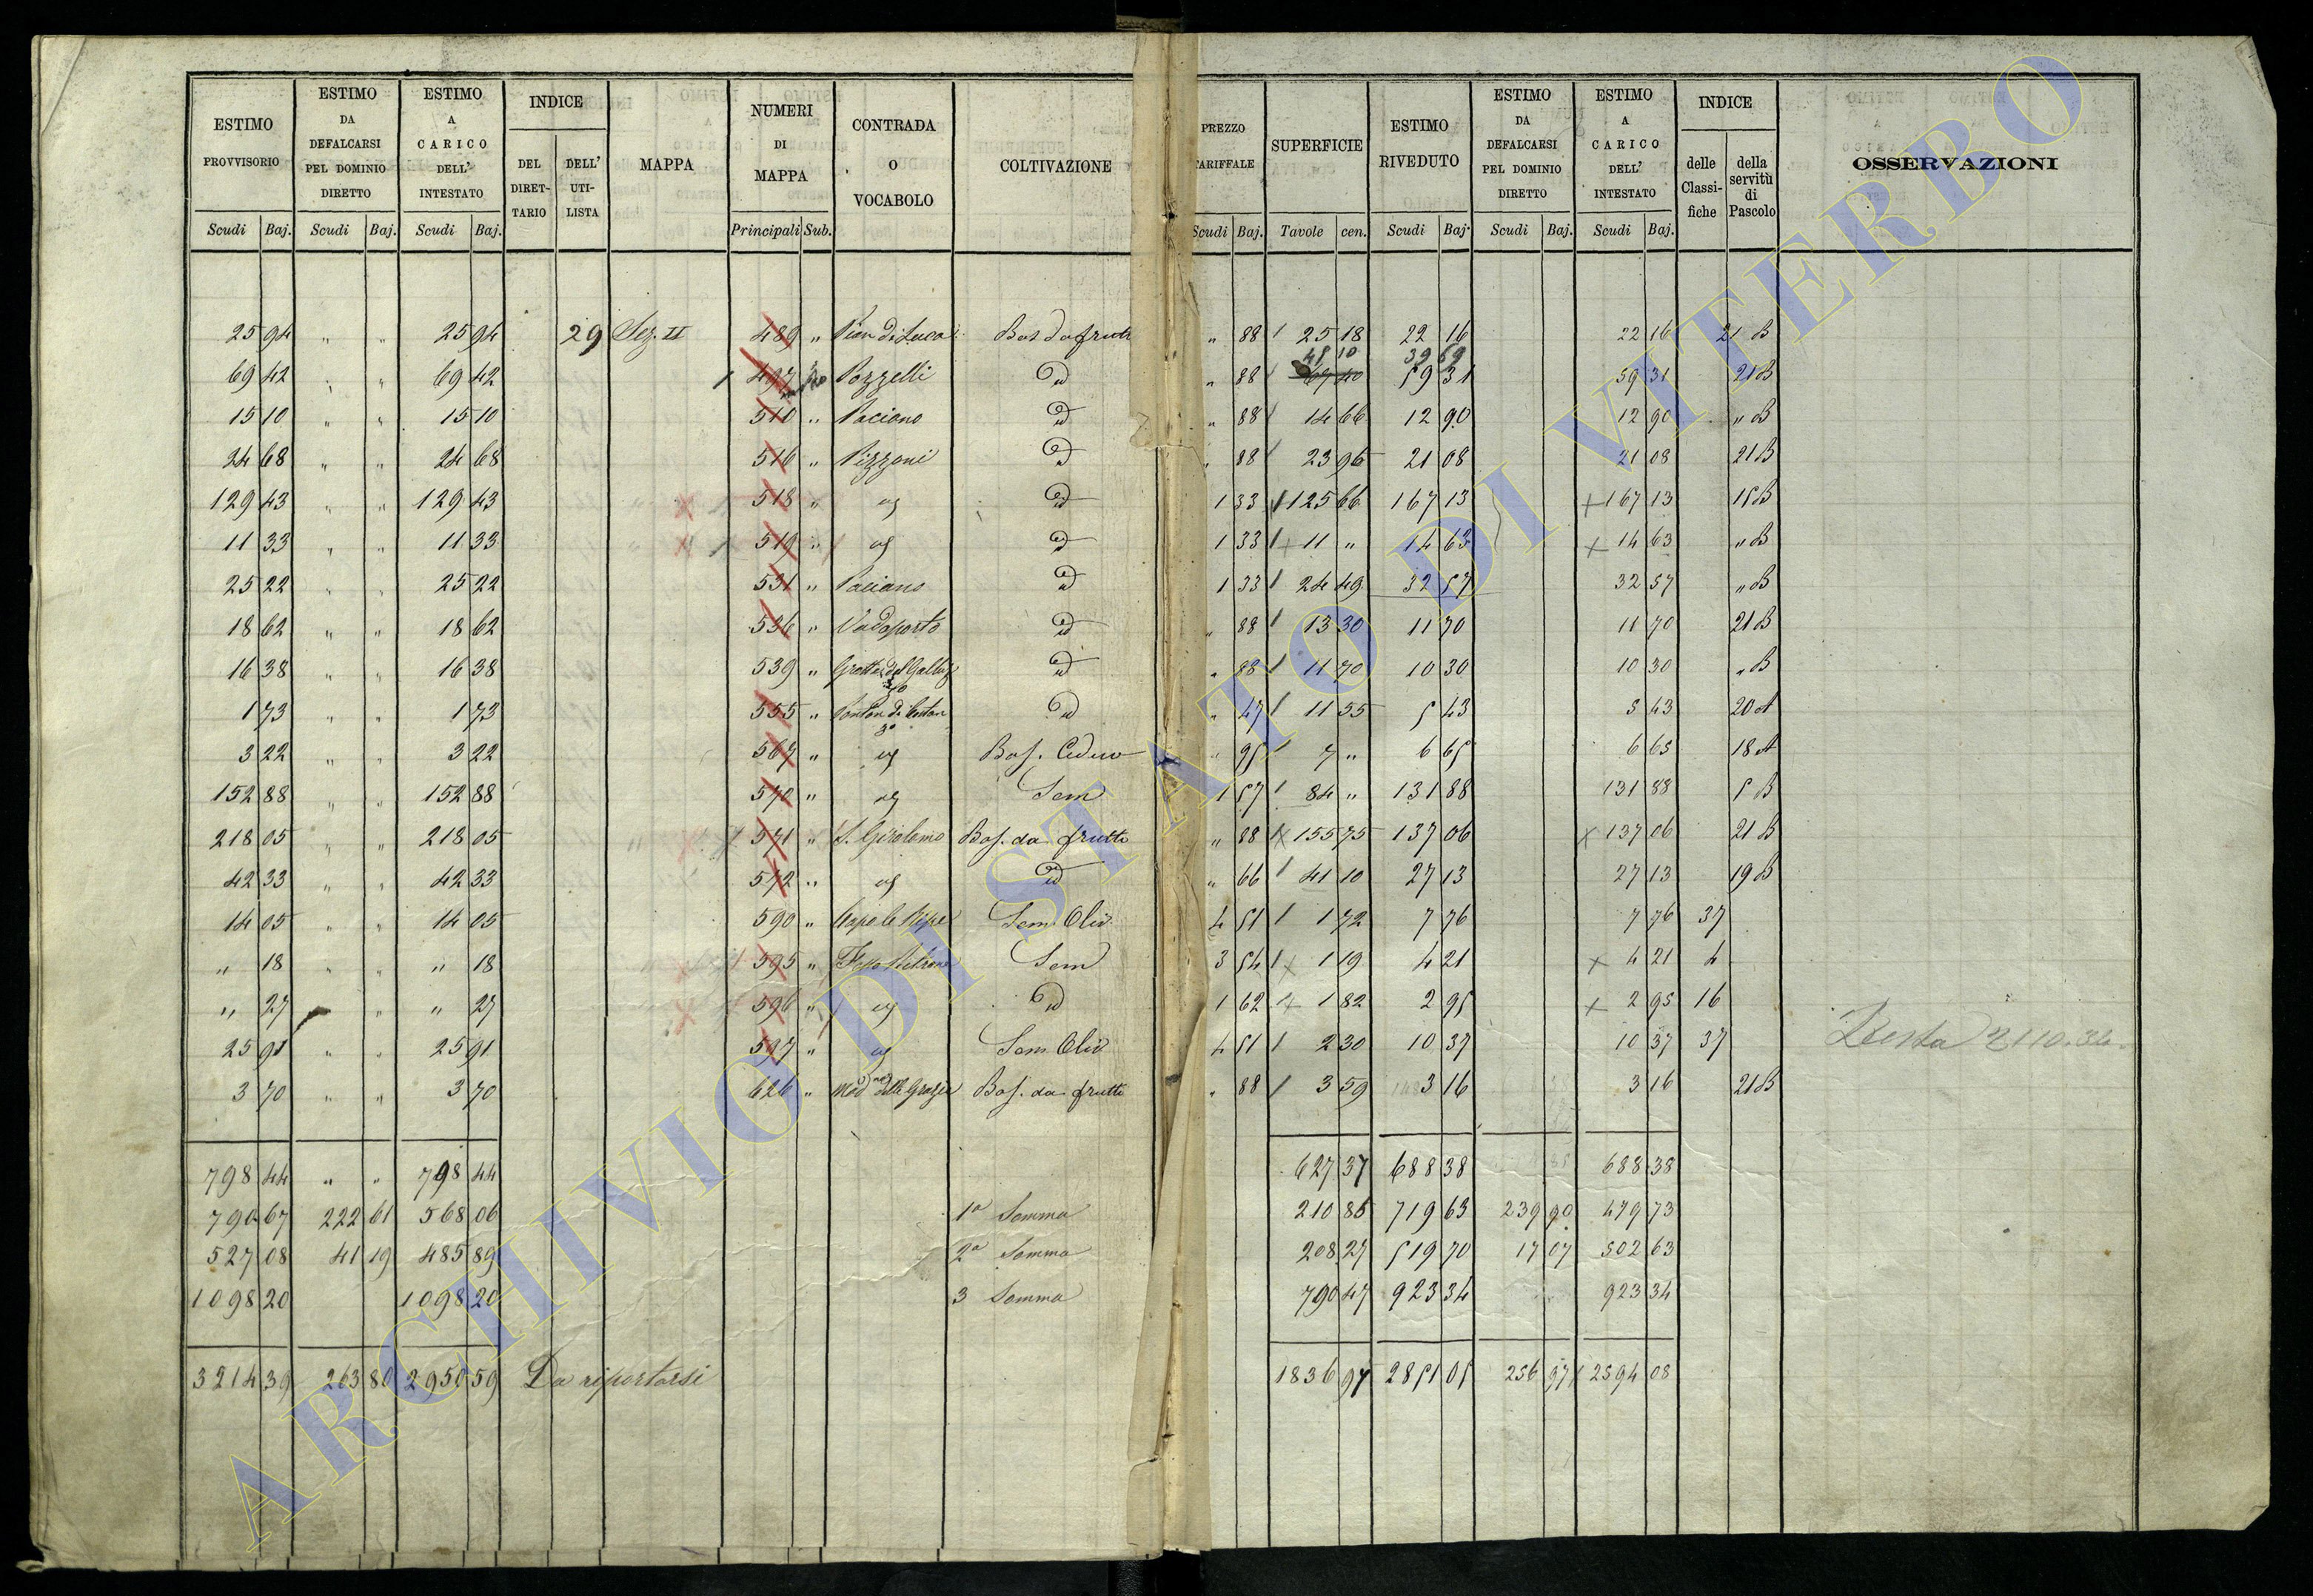 ESTIMO PROVVISORIO | ESTIMO DA DEFALCARSI PEL DOMINIO DIRETTO | ESTIMO A CARICO DELL' INTESTATO | INDICE | MAPPA | NUMERI DI MAPPA | CONTRADA O VOCABOLO | COLTIVAZIONE | PREZZO TARIFFALE | SUPERFICIE | ESTIMO RIVEDUTO | ESTIMO DA DEFALCARSI PEL DOMINIO DIRETTO | ESTIMO A CARICO DELL' INTESTATO | INDICE | OSSERVAZIONI
DEL DIRET-TARIO | DELL' UTI-LISTA | delle Classi-fiche | della servitù di Pascolo
Scudi | Baj. | Scudi | Baj. | Scudi | Baj. | Principali | Sub. | Scudi | Baj. | Tavole | cen. | Scudi | Baj. | Scudi | Baj. | Scudi | Baj.
25 94 " " 25 94 29 Sez. II 489 " Pian di Luca Bos da frutt " 88 25 18 22 16 22 16 21 B
48 10 39 69
69 42 " " 69 42 497 Pozzelli id " 88 67 40 59 31 59 31 21 B
15 10 " " 15 10 510 " Paciano id " 88 14 66 12 90 12 90 " B
24 68 " " 24 68 516 " Pizzoni id " 88 23 96 21 08 21 08 21 B
129 43 " " 129 43 518 " id 1 33 125 66 167 13 167 13 15 B
11 33 " " 11 33 519 " id 1 33 11 " 14 63 14 63 " B
25 22 " " 25 22 531 " Paciano id 1 33 24 49 32 57 32 57 " B
18 62 " " 18 62 536 " Vadoporto id " 88 13 30 11 70 11 70 21 B
16 38 " " 16 38 539 " id " 88 11 70 10 30 10 30 " B
1 73 " " 1 73 555 " id " 47 11 55 5 43 5 43 20 A
3 22 " " 3 22 567 " Bos. Ceduo " 95 7 " 6 65 6 65 18 A
152 88 " " 152 88 570 " Sem 1 57 84 " 131 88 131 88 5 B
218 05 " " 218 05 571 " S. Girolamo Bos. da frutti " 88 155 75 137 06 137 06 21 B
42 33 " " 42 33 572 " id " 66 41 10 27 13 27 13 19 B
14 05 " " 14 05 590 " Sem. Oliv. 4 51 1 72 7 76 7 76 37
" 18 " " " 18 595 " Sem 3 54 1 19 4 21 4 21 4
" 27 " " 27 596 " id 1 62 1 82 2 95 2 95 16
25 91 " " 25 91 597 " Sem. Oliv 4 51 2 30 10 37 10 37 37 Resta 2110.34
3 70 " " 3 70 626 " Mad.na delle Grazie Bos. da frutti " 88 3 59 3 16 3 16 21 B
798 44 " " 798 44 627 37 688 38 688 38
790 67 222 61 568 06 1a Somma 210 86 719 63 239 90 479 73
527 08 41 19 485 89 2a Somma 208 27 519 70 17 07 502 63
1098 20 1098 20 3 Somma 790 47 923 34 923 34
3214 39 263 80 2950 59 Da riportarsi 1836 97 2851 05 256 97 2594 08
ARCHIVIO DI STATO DI VITERBO